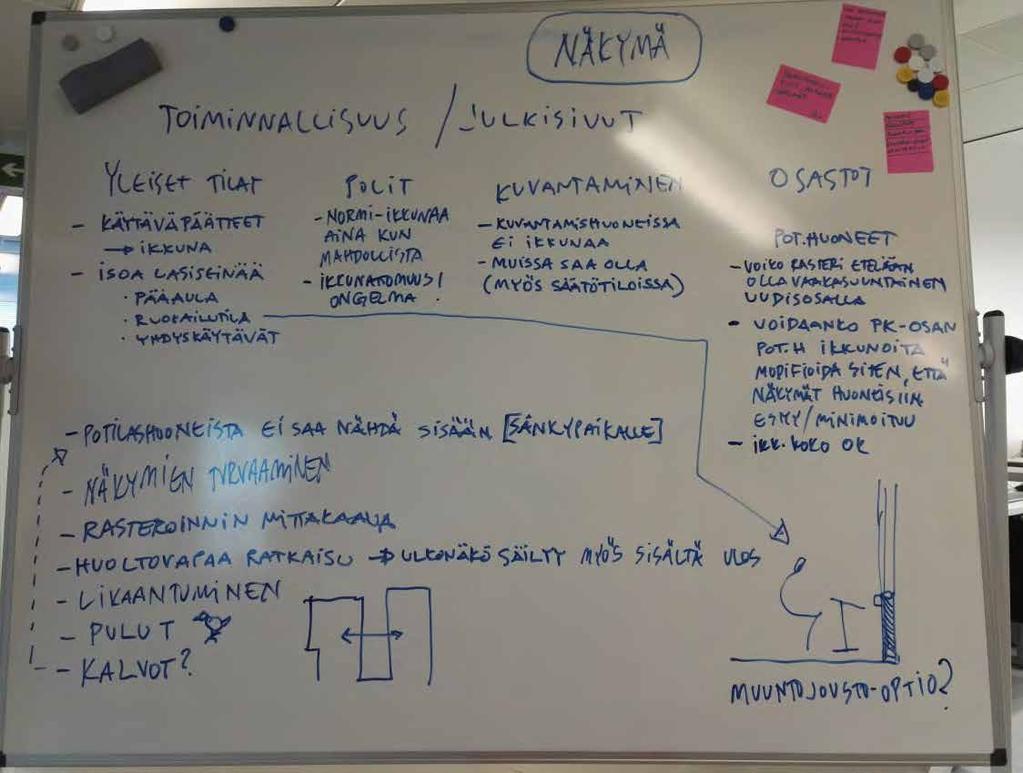 NÄKYMÄ
TOIMINNALLISUUS / JULKISIVUT
YLEISET TILAT
- KÄYTÄVÄPÄÄTTEET
→ IKKUNA
- ISOA LASISEINÄÄ
· PÄÄAULA
· RUOKAILUTILA
· YHDYSKÄYTÄVÄT
POLIT
- NORMI-IKKUNAA
AINA KUN
MAHDOLLISTA
- IKKUNATTOMUUS!
ONGELMA.
KUVANTAMINEN
- KUVANTAMISHUONEISSA
EI IKKUNAA
- MUISSA SAA OLLA
(MYÖS SÄÄTÖTILOISSA)
OSASTOT
POT.HUONEET
- VOIKO RASTERI ETELÄÄN
OLLA VAAKASUUNTAINEN
UUDISOSALLA
- VOIDAANKO PK-OSAN
POT.H IKKUNOITA
MODIFIOIDA SITEN, ETTÄ
NÄKYMÄT HUONEISIIN
ESTYY/MINIMOITUU
- IKK. KOKO OK
- POTILASHUONEISTA EI SAA NÄHDÄ SISÄÄN [SÄNKYPAIKALLE]
- NÄKYMIEN TURVAAMINEN
- RASTEROINNIN MITTAKAAVA
- HUOLTOVAPAA RATKAISU → ULKONÄKÖ SÄILYY MYÖS SISÄLTÄ ULOS
- LIKAANTUMINEN
- PULUT
- KALVOT?
MUUNTOJOUSTO-OPTIO?